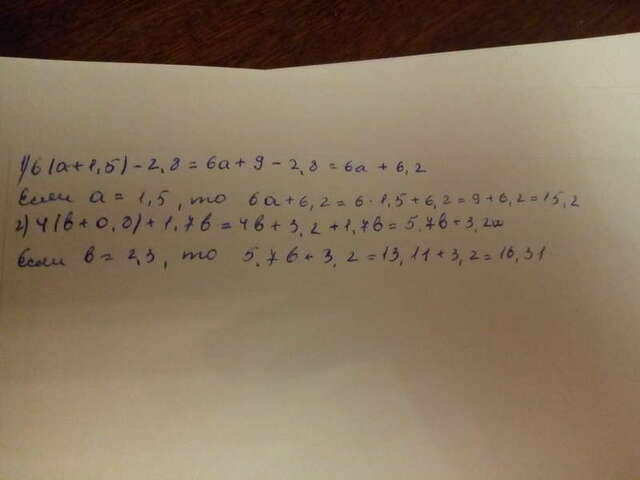 1) 6(a+1,5)-2,8=6a+9-2,8=6a+6,2
Если a=1,5, то 6a+6,2=6·1,5+6,2=9+6,2=15,2
2) 4(b+0,8)+1,7b=4b+3,2+1,7b=5,7b+3,2
Если b=2,3, то 5,7b+3,2=13,11+3,2=16,31